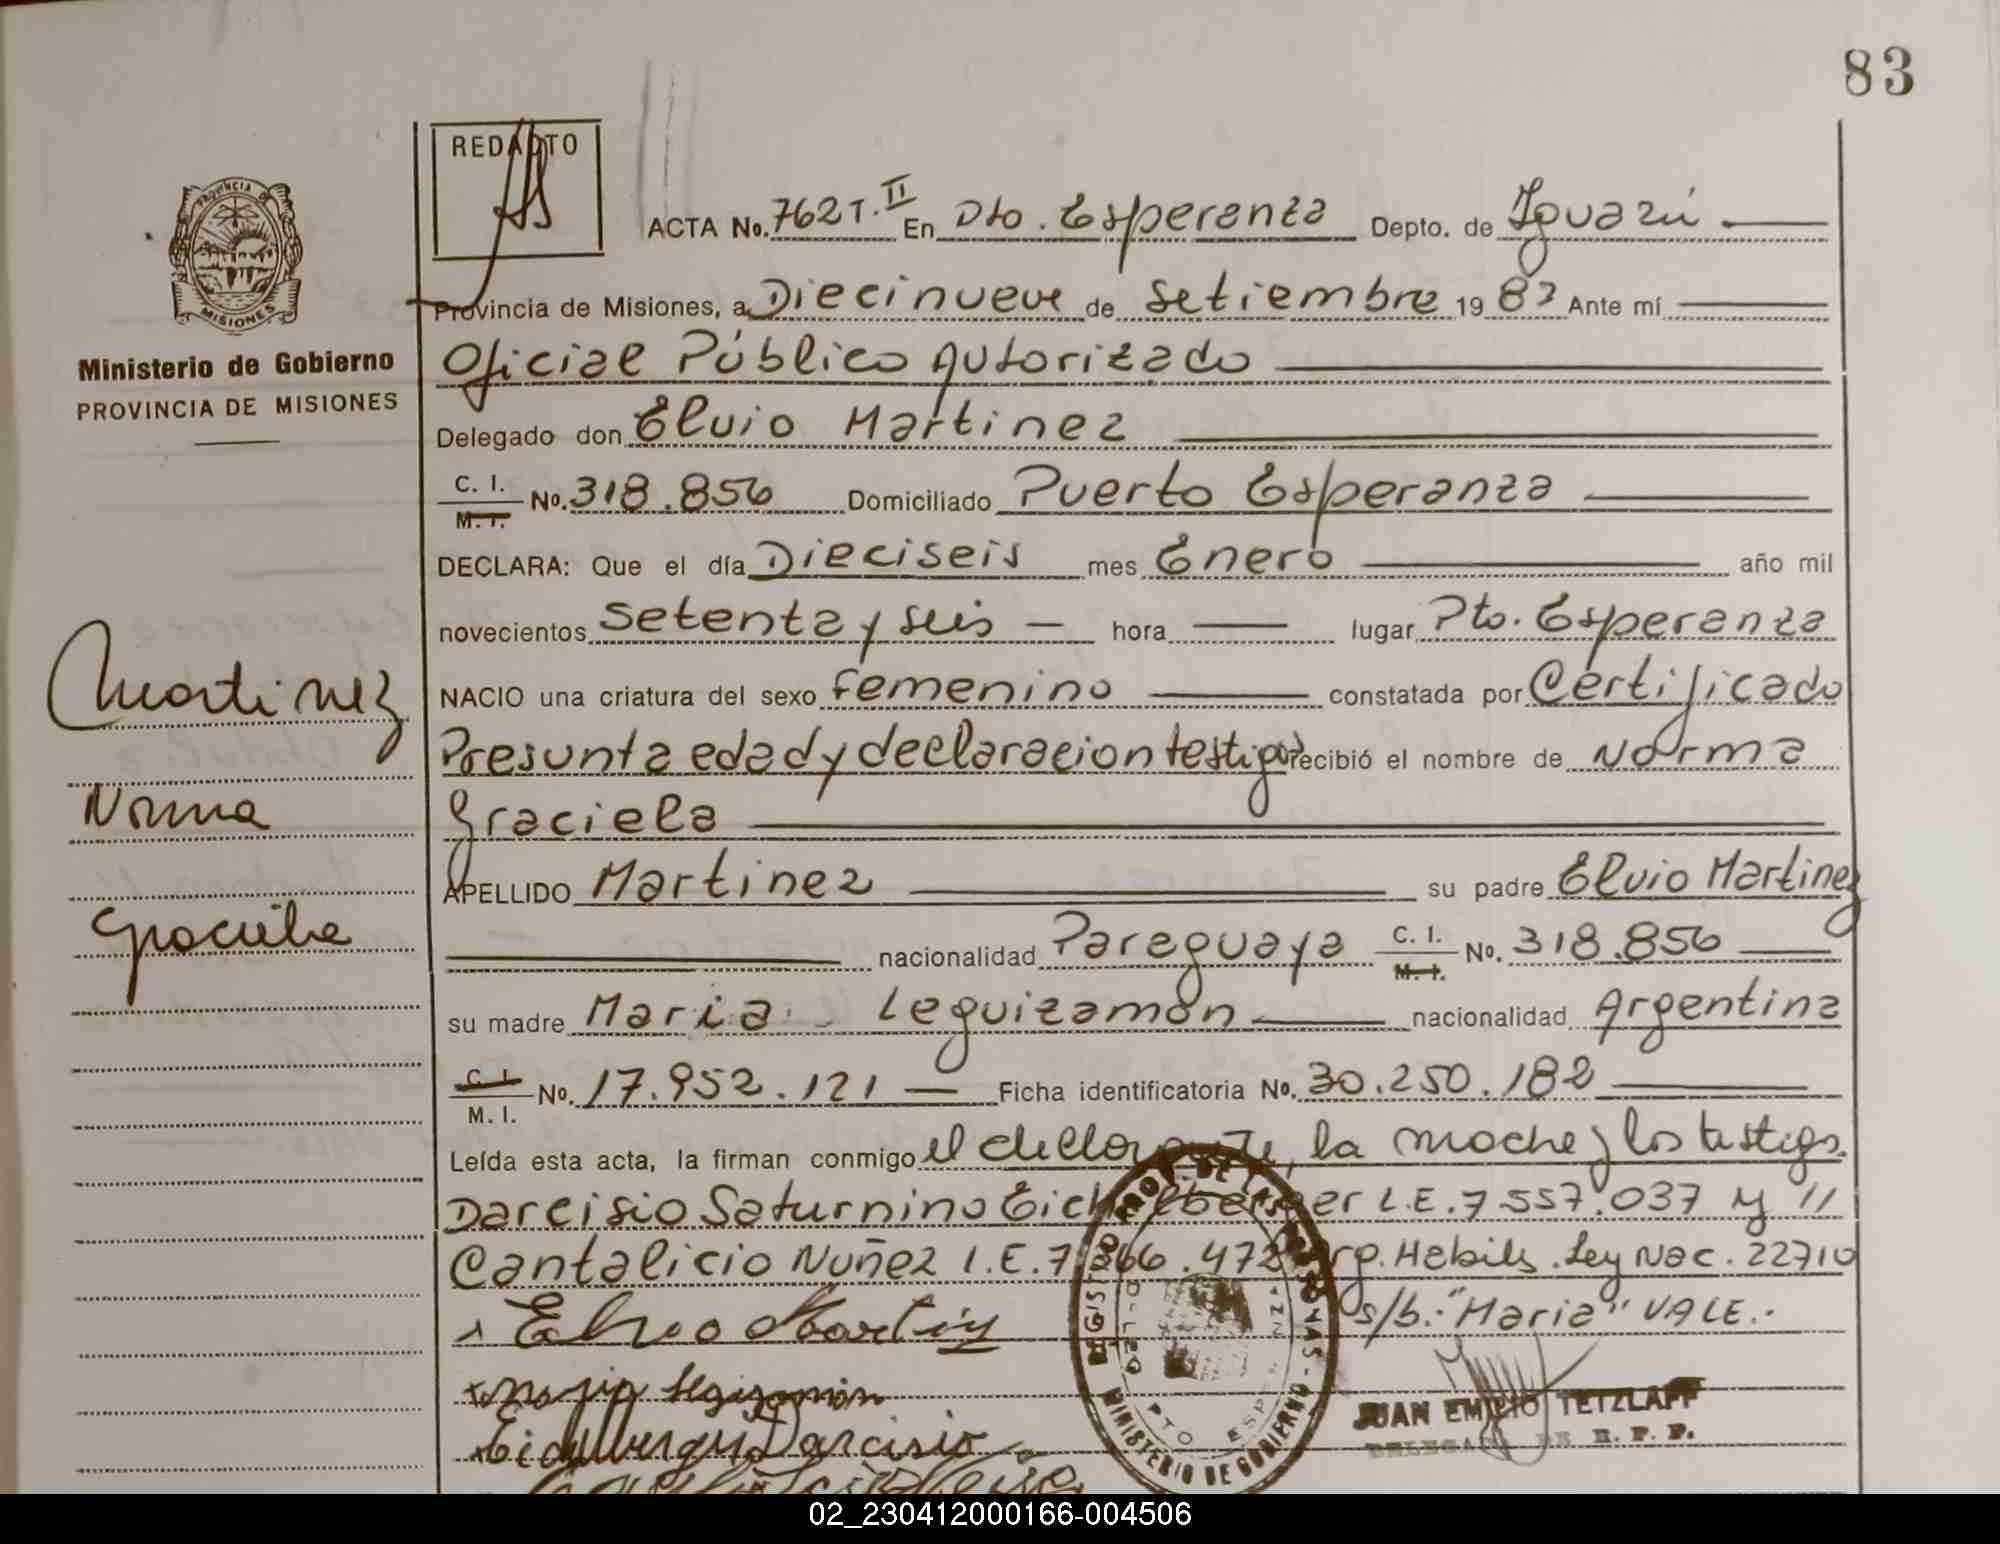 83
REDACTO
ACTA No. 762 T. II En Pto. Esperanza Depto. de Iguazú
Provincia de Misiones, a Diecinueve de Setiembre 1983 Ante mí
Oficial Público Autorizado
Delegado don Elvio Martinez
C. I. M. I. No. 318.856 Domiciliado Puerto Esperanza
DECLARA: Que el día Dieciseis mes Enero año mil
novecientos Setenta y seis hora lugar Pto. Esperanza
NACIO una criatura del sexo femenino constatada por Certificado
Presunta edad y declaracion testigos recibió el nombre de Norma
Graciela
APELLIDO Martinez su padre Elvio Martinez
nacionalidad Paraguaya C. I. M. I. No. 318.856
su madre Maria Leguizamón nacionalidad Argentina
C. I. M. I. No. 17.952.121 Ficha identificatoria No. 30.250.182
Leída esta acta, la firman conmigo el declarante, la madre y los testigos.
Darcisio Saturnino Eichelberger L.E. 7.557.037 y //
Cantalicio Nuñez L.E. 7. 472 Arg. Habils. Ley Nac. 22710
s/b: "Maria" VALE.-
Elvio Martinez
Maria Leguizamón
Eichelberger Darcisio
JUAN EMILIO TETZLAFF
DELEGADO DE R. P. P.
MINISTERIO DE GOBIERNO
PROVINCIA DE
MISIONES
Ministerio de Gobierno
PROVINCIA DE MISIONES
Martinez
Norma
Graciela
02_230412000166-004506